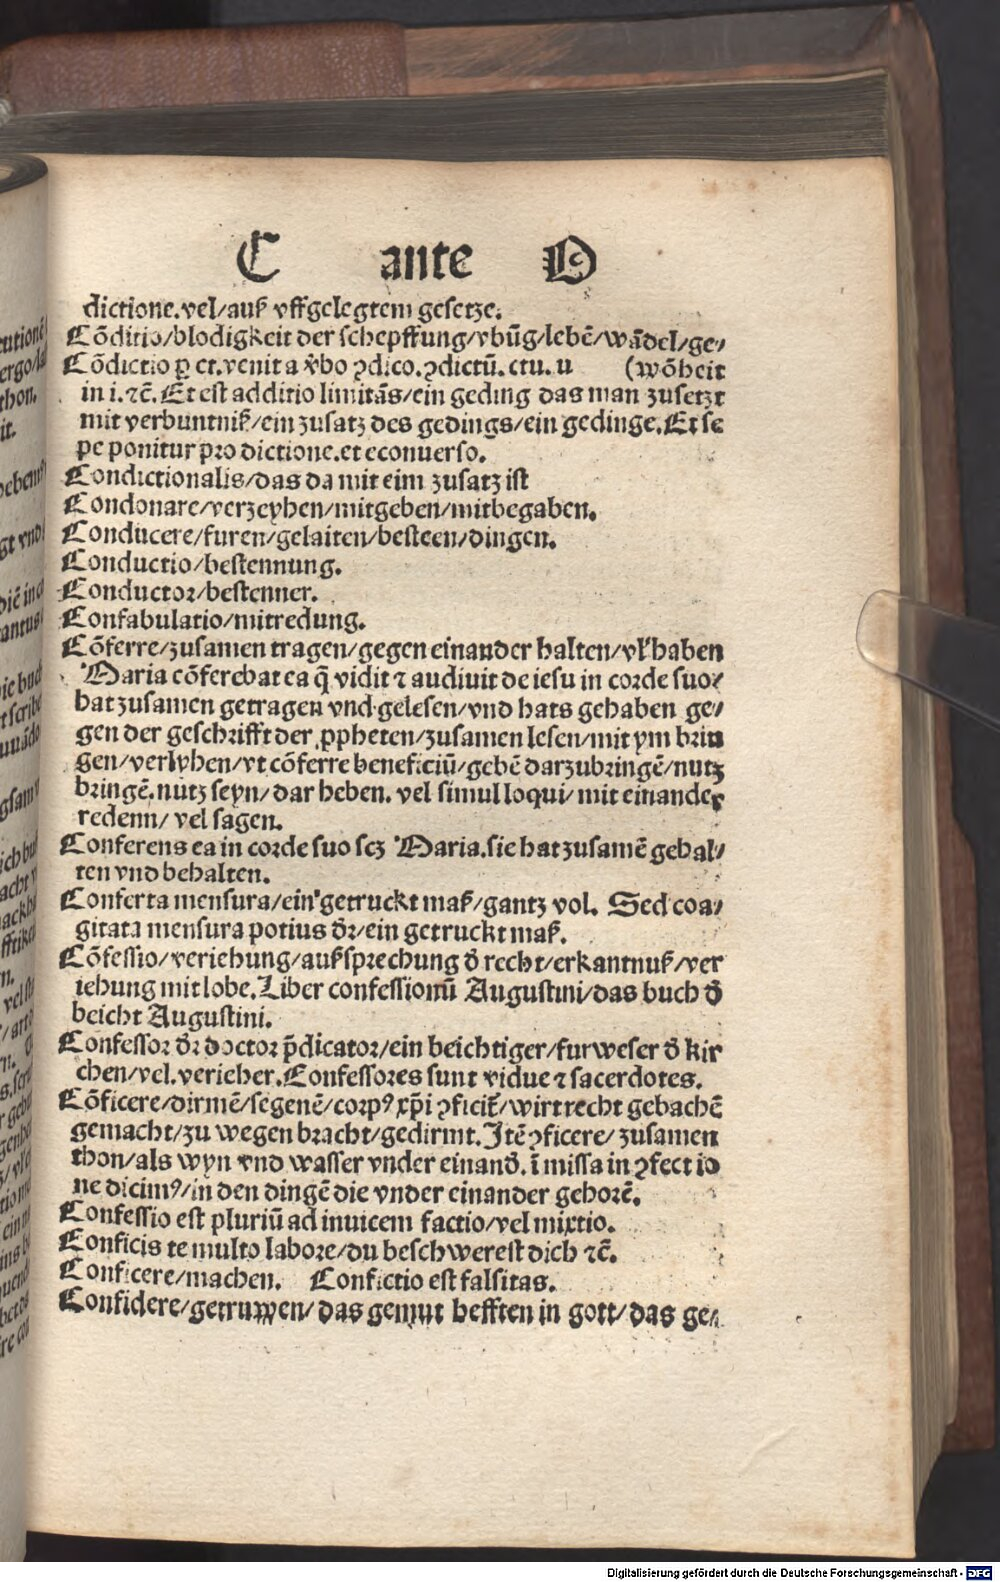 C ante O
dictione.vel/auß vffgelegtem gesetze.
Cõditio/blodigkeit der schepffung/vbũg/lebẽ/wãdel/ge⸗
Cõdictio ꝑ ct.venit a v̾bo ꝯdico.ꝯdictũ.ctu.u (wõheit
in i.⁊c̃. Et est additio limitãs/ein geding das man zusetzt
mit verbuntniß/ein zusatz des gedings/ein gedinge.Et se
pe ponitur pro dictione.et econuerso.
Condictionalis/das da mit eim zusatz ist
Condonare/verzeyhen/mitgeben/mitbegaben.
Conducere/furen/gelaiten/besteen/dingen.
Conductio/bestennung.
Conductor/bestenner.
Confabulatio/mitredung.
Cõferre/zusamen tragen/gegen einander halten/vl̕ haben
Maria cõferebat ea q̃ vidit ⁊ audiuit de iesu in corde suo⸗
hat zusamen getragen vnd gelesen/vnd hats gehaben ge⸗
gen der geschrifft der ꝓpheten/zusamen lesen/mit ym brin
gen/verlyhen/vt cõferre beneficiũ/gebẽ darzubringẽ/nutz
bringẽ.nutz seyn/dar heben. vel simul loqui/mit einander
redenn/vel sagen.
Conferens ea in corde suo scꝫ Maria.sie hat zusamẽ gehal⸗
ten vnd behalten.
Conferta mensura/ein getruckt maß/gantz vol. Sed coa⸗
gitata mensura potius d̾r/ein getruckt maß.
Cõfessio/veriehung/außsprechung d̾ recht/erkantnuß/ver
iehung mit lobe.Liber confessionũ Augustini/das buch d̾
beicht Augustini.
Confessor d̾r doctor p̃dicator/ein beichtiger/furweser d̾ kir
chen/vel.verieher.Confessores sunt vidue ⁊ sacerdotes.
Cõficere/dirmẽ/segenẽ/corpꝰ xp̃i ꝯficit̾/wirt recht gebachẽ
gemacht/zu wegen bracht/gedirmt.Itẽ ꝯficere/zusamen
thon/als wyn vnd wasser vnder einand̾.ĩ missa in ꝯfectio
ne dicimꝰ/in den dingẽ die vnder einander gehorẽ.
Confessio est pluriũ ad inuicem factio/vel mixtio.
Conficis te multo labore/du beschwerest dich ⁊c̃.
Conficere/machen. Confictio est falsitas.
Confidere/getruwen/das gemut hefften in gott/das ge⸗
Digitalisierung gefördert durch die Deutsche Forschungsgemeinschaft - DFG